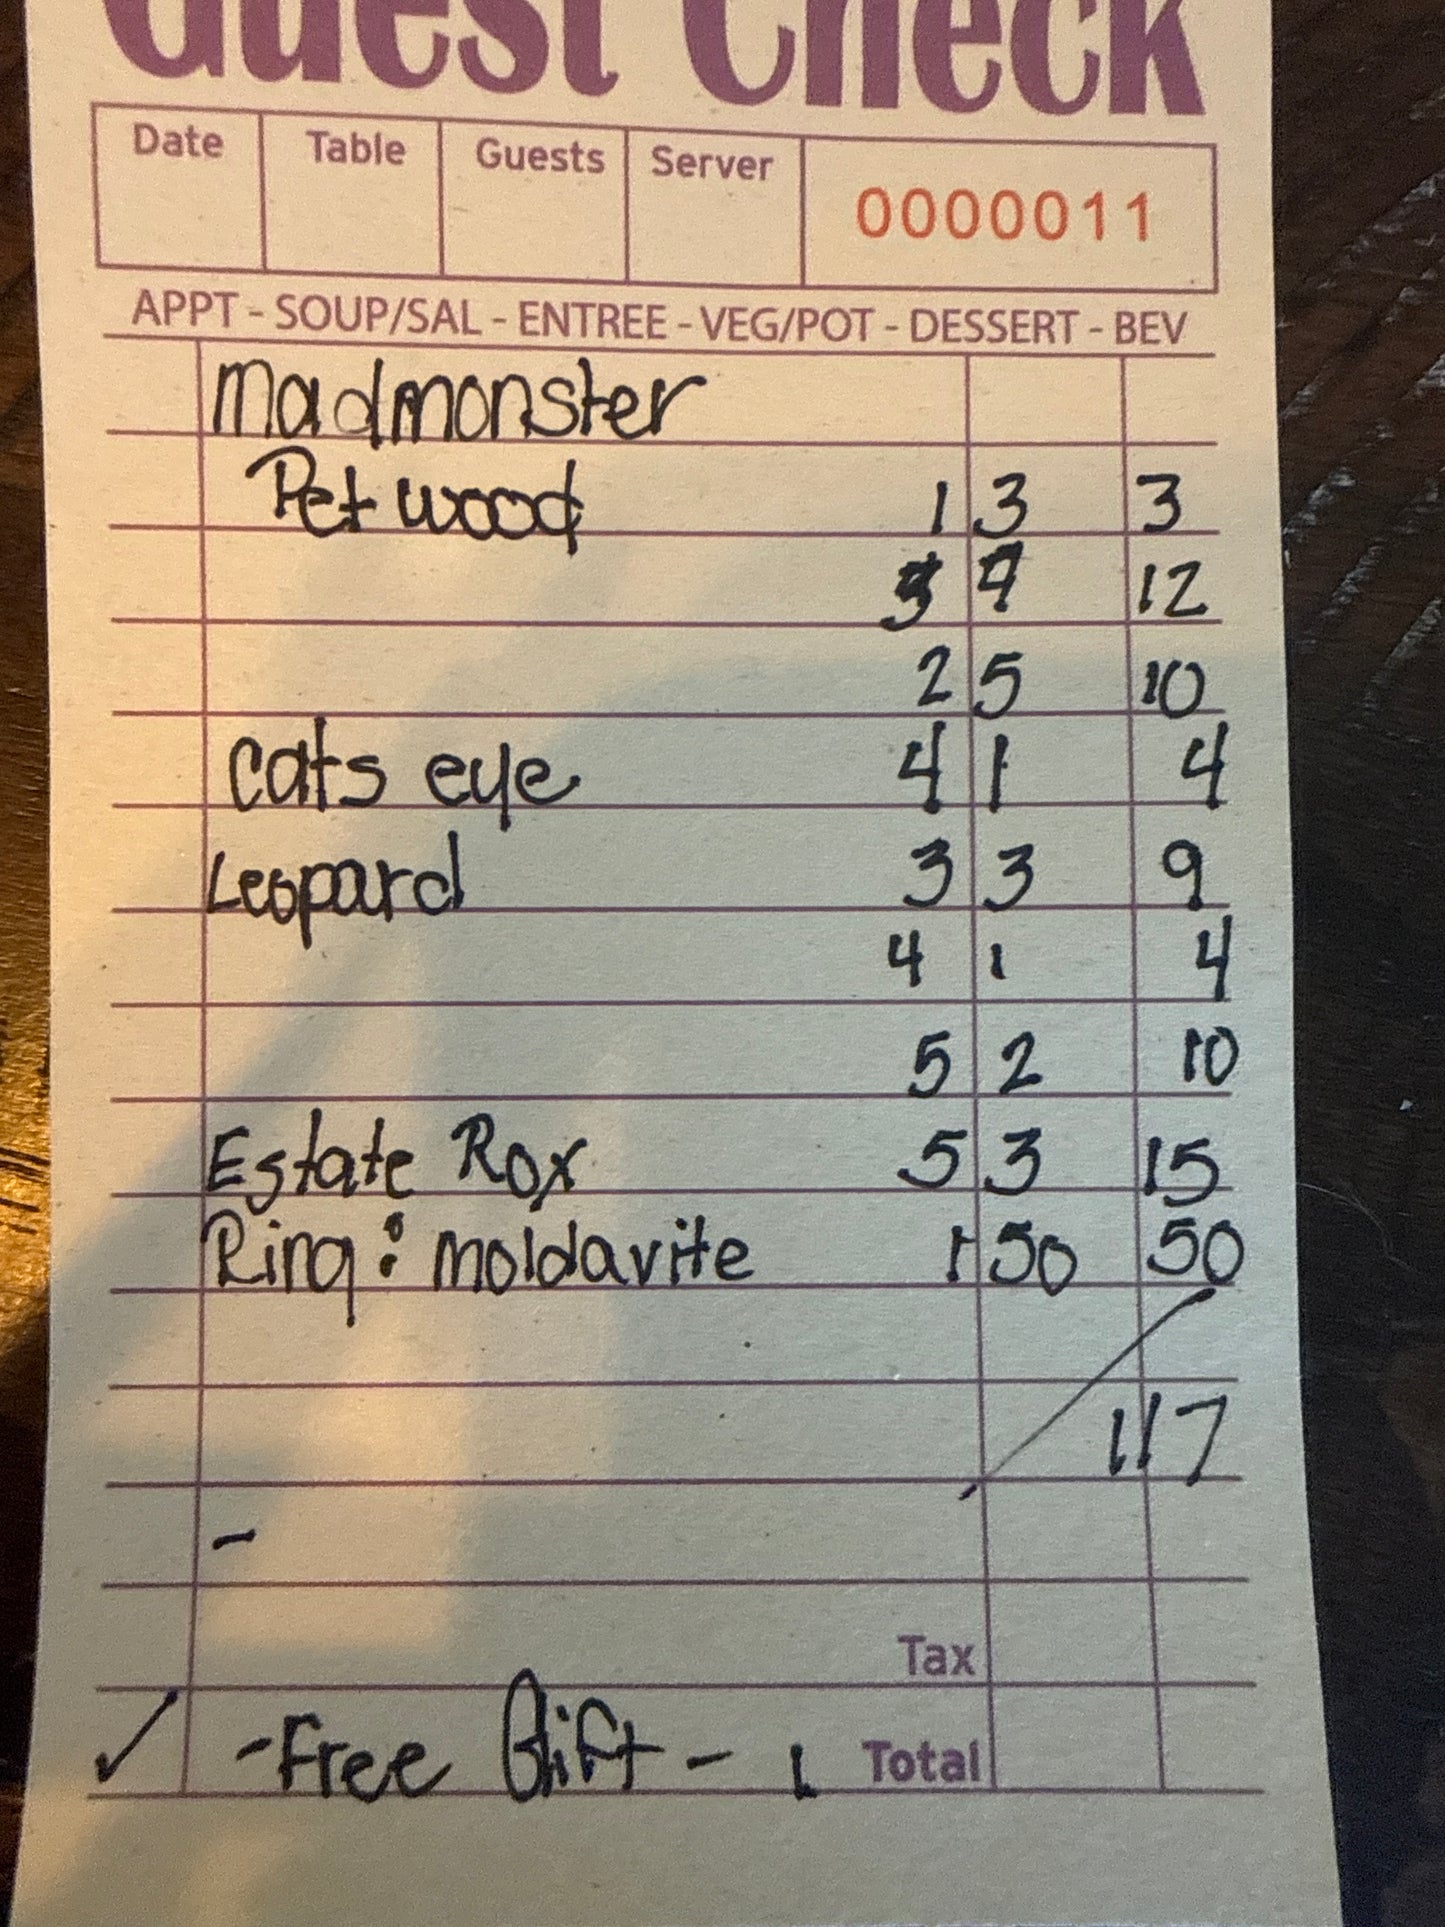 Guest Check
Date Table Guests Server 0000011
APPT - SOUP/SAL - ENTREE - VEG/POT - DESSERT - BEV
Madmonster
Pet wood 1 3 3
4 12
2 5 10
cats eye 4 1 4
Leopard 3 3 9
4 1 4
5 2 10
Estate Rox 5 3 15
Ring: moldavite 1 50 50
117
-
Tax
✓ -Free Gift - 1 Total